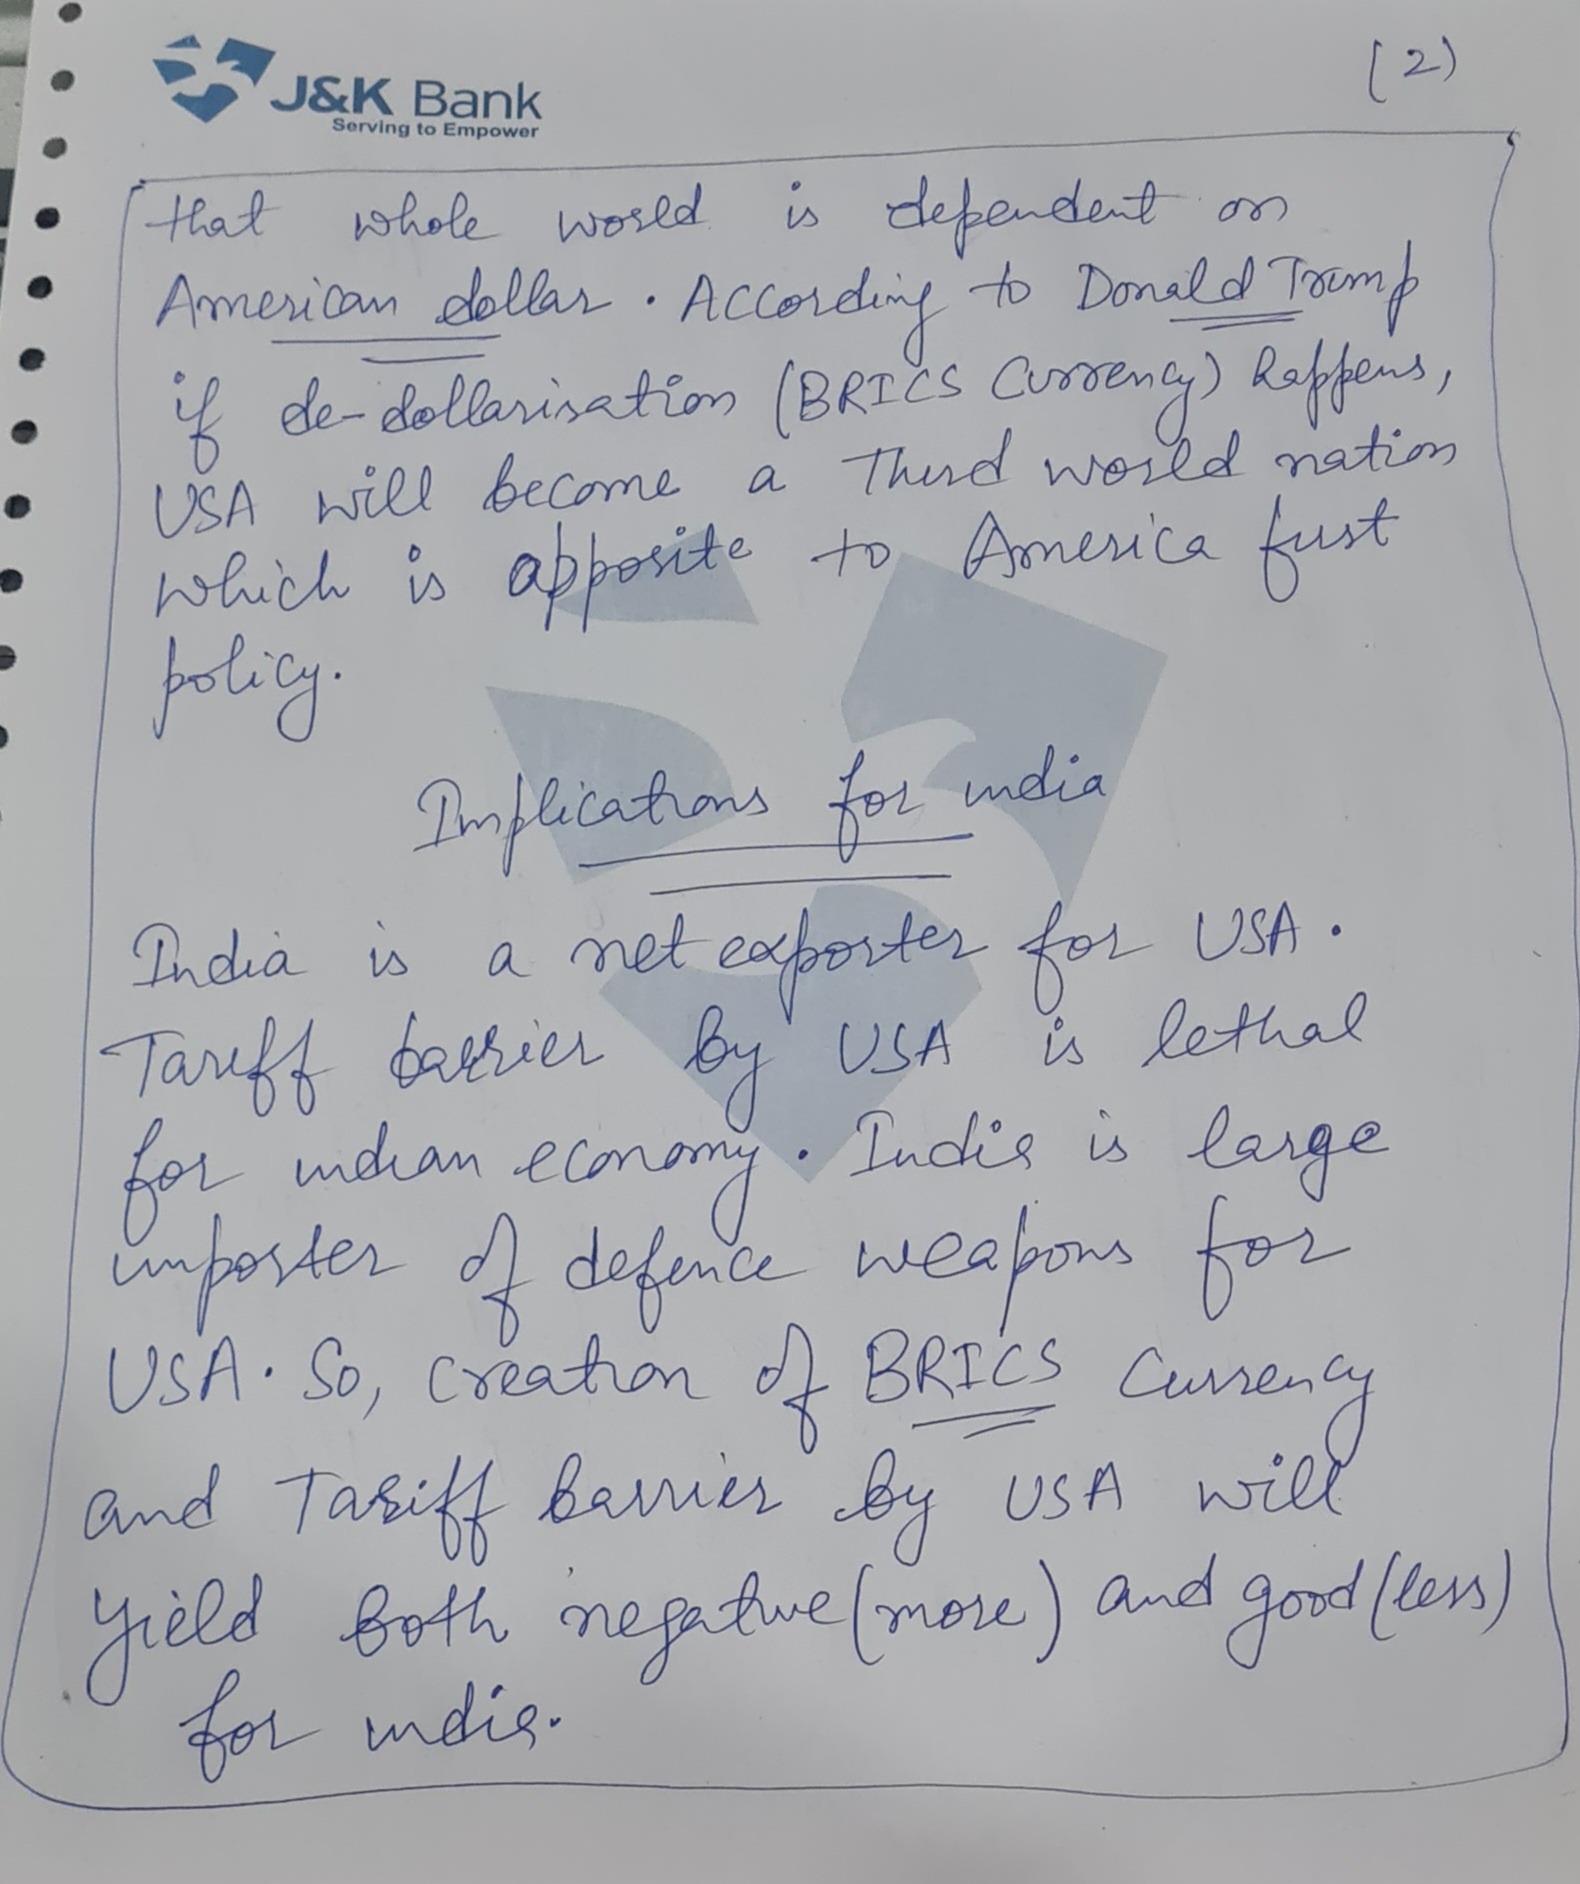 J&K Bank
Serving to Empower
(2)
that whole world is dependent on
American dollar. According to Donald Trump
if de-dollarisation (BRICS Currency) happens,
USA will become a Third world nation
which is opposite to America first
policy.
Implications for india
India is a net exporter for USA.
Tariff barrier by USA is lethal
for indian economy. India is large
importer of defence weapons for
USA. So, creation of BRICS Currency
and Tariff barrier by USA will
yield both negative (more) and good (less)
for india.